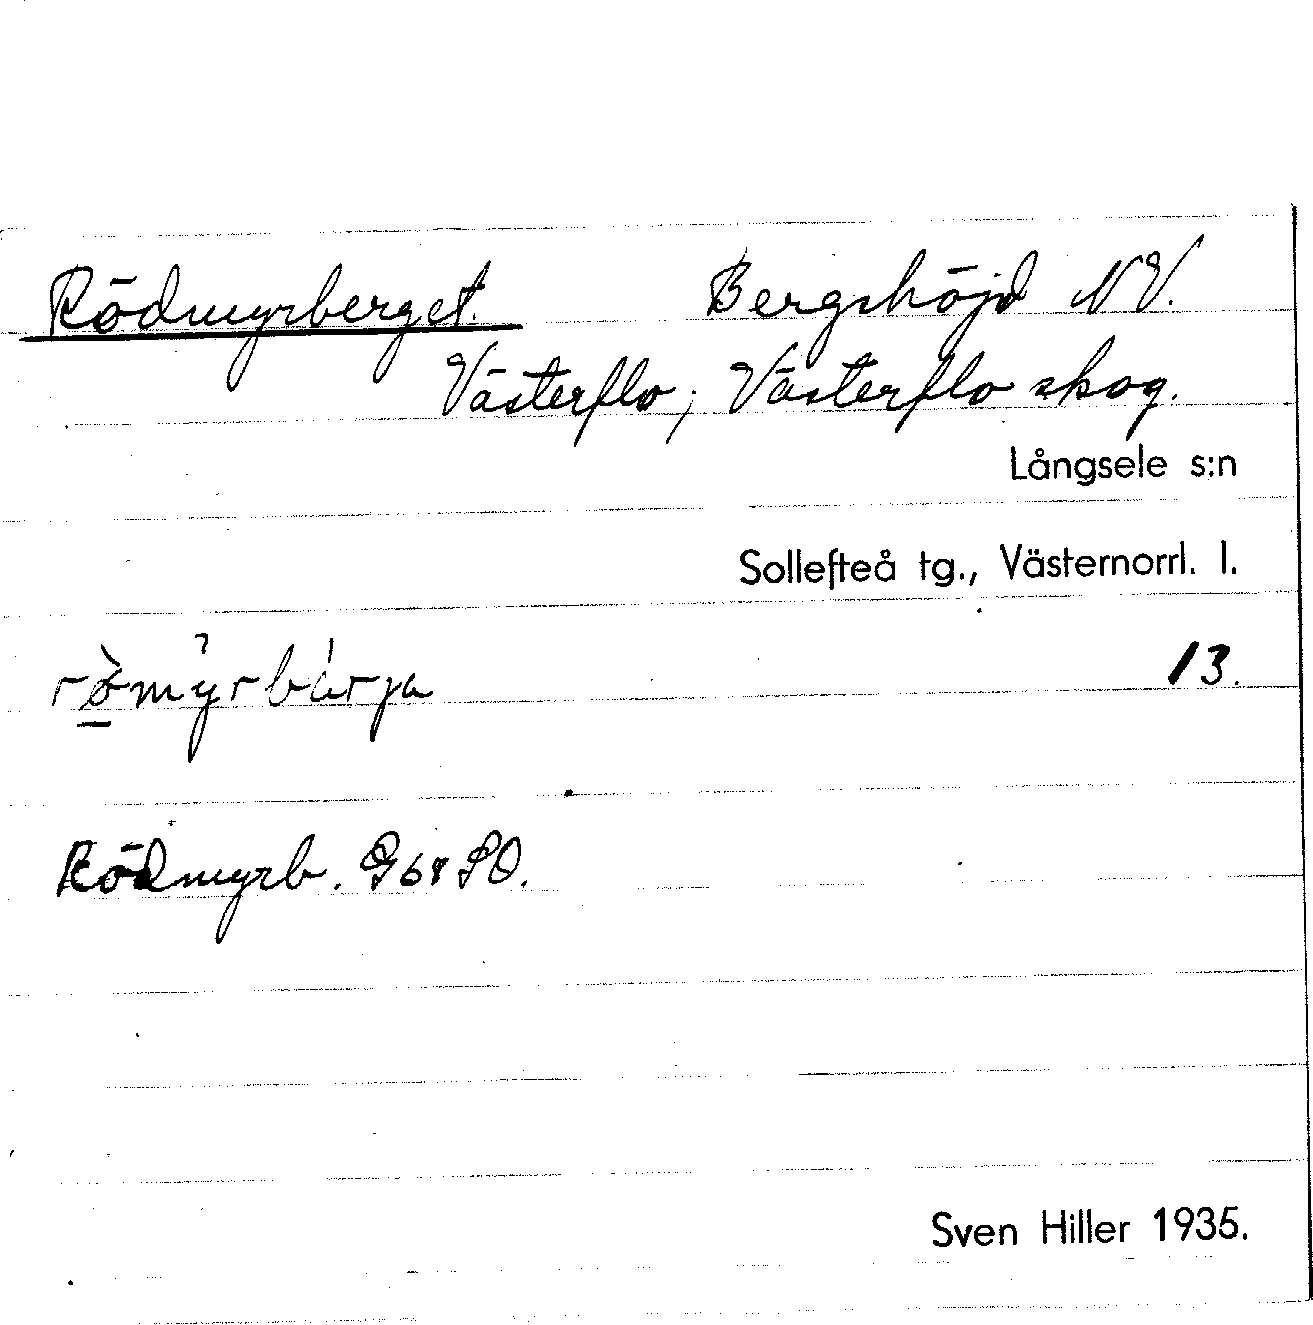 Rödmyrberget. Bergshöjd NV.
Västerflo; Västerflo skog.
Långsele s:n
Sollefteå tg., Västernorrl. l.
13.
Rödmyrb. G68 SO.
Sven Hiller 1935.